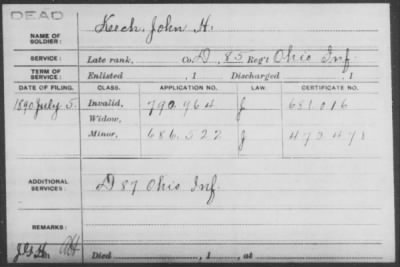 DEAD
NAME OF SOLDIER: Kerch, John H.
SERVICE: Late rank, Co. D, 85 Reg't Ohio Inf.
TERM OF SERVICE: Enlisted , 1 Discharged , 1
DATE OF FILING. CLASS. APPLICATION NO. LAW. CERTIFICATE NO.
1890 July 5. Invalid, 790.964 J 681.016
Widow,
Minor, 686.522 J 473.478
ADDITIONAL SERVICES: D 87 Ohio Inf.
REMARKS:
Died , 1 , at